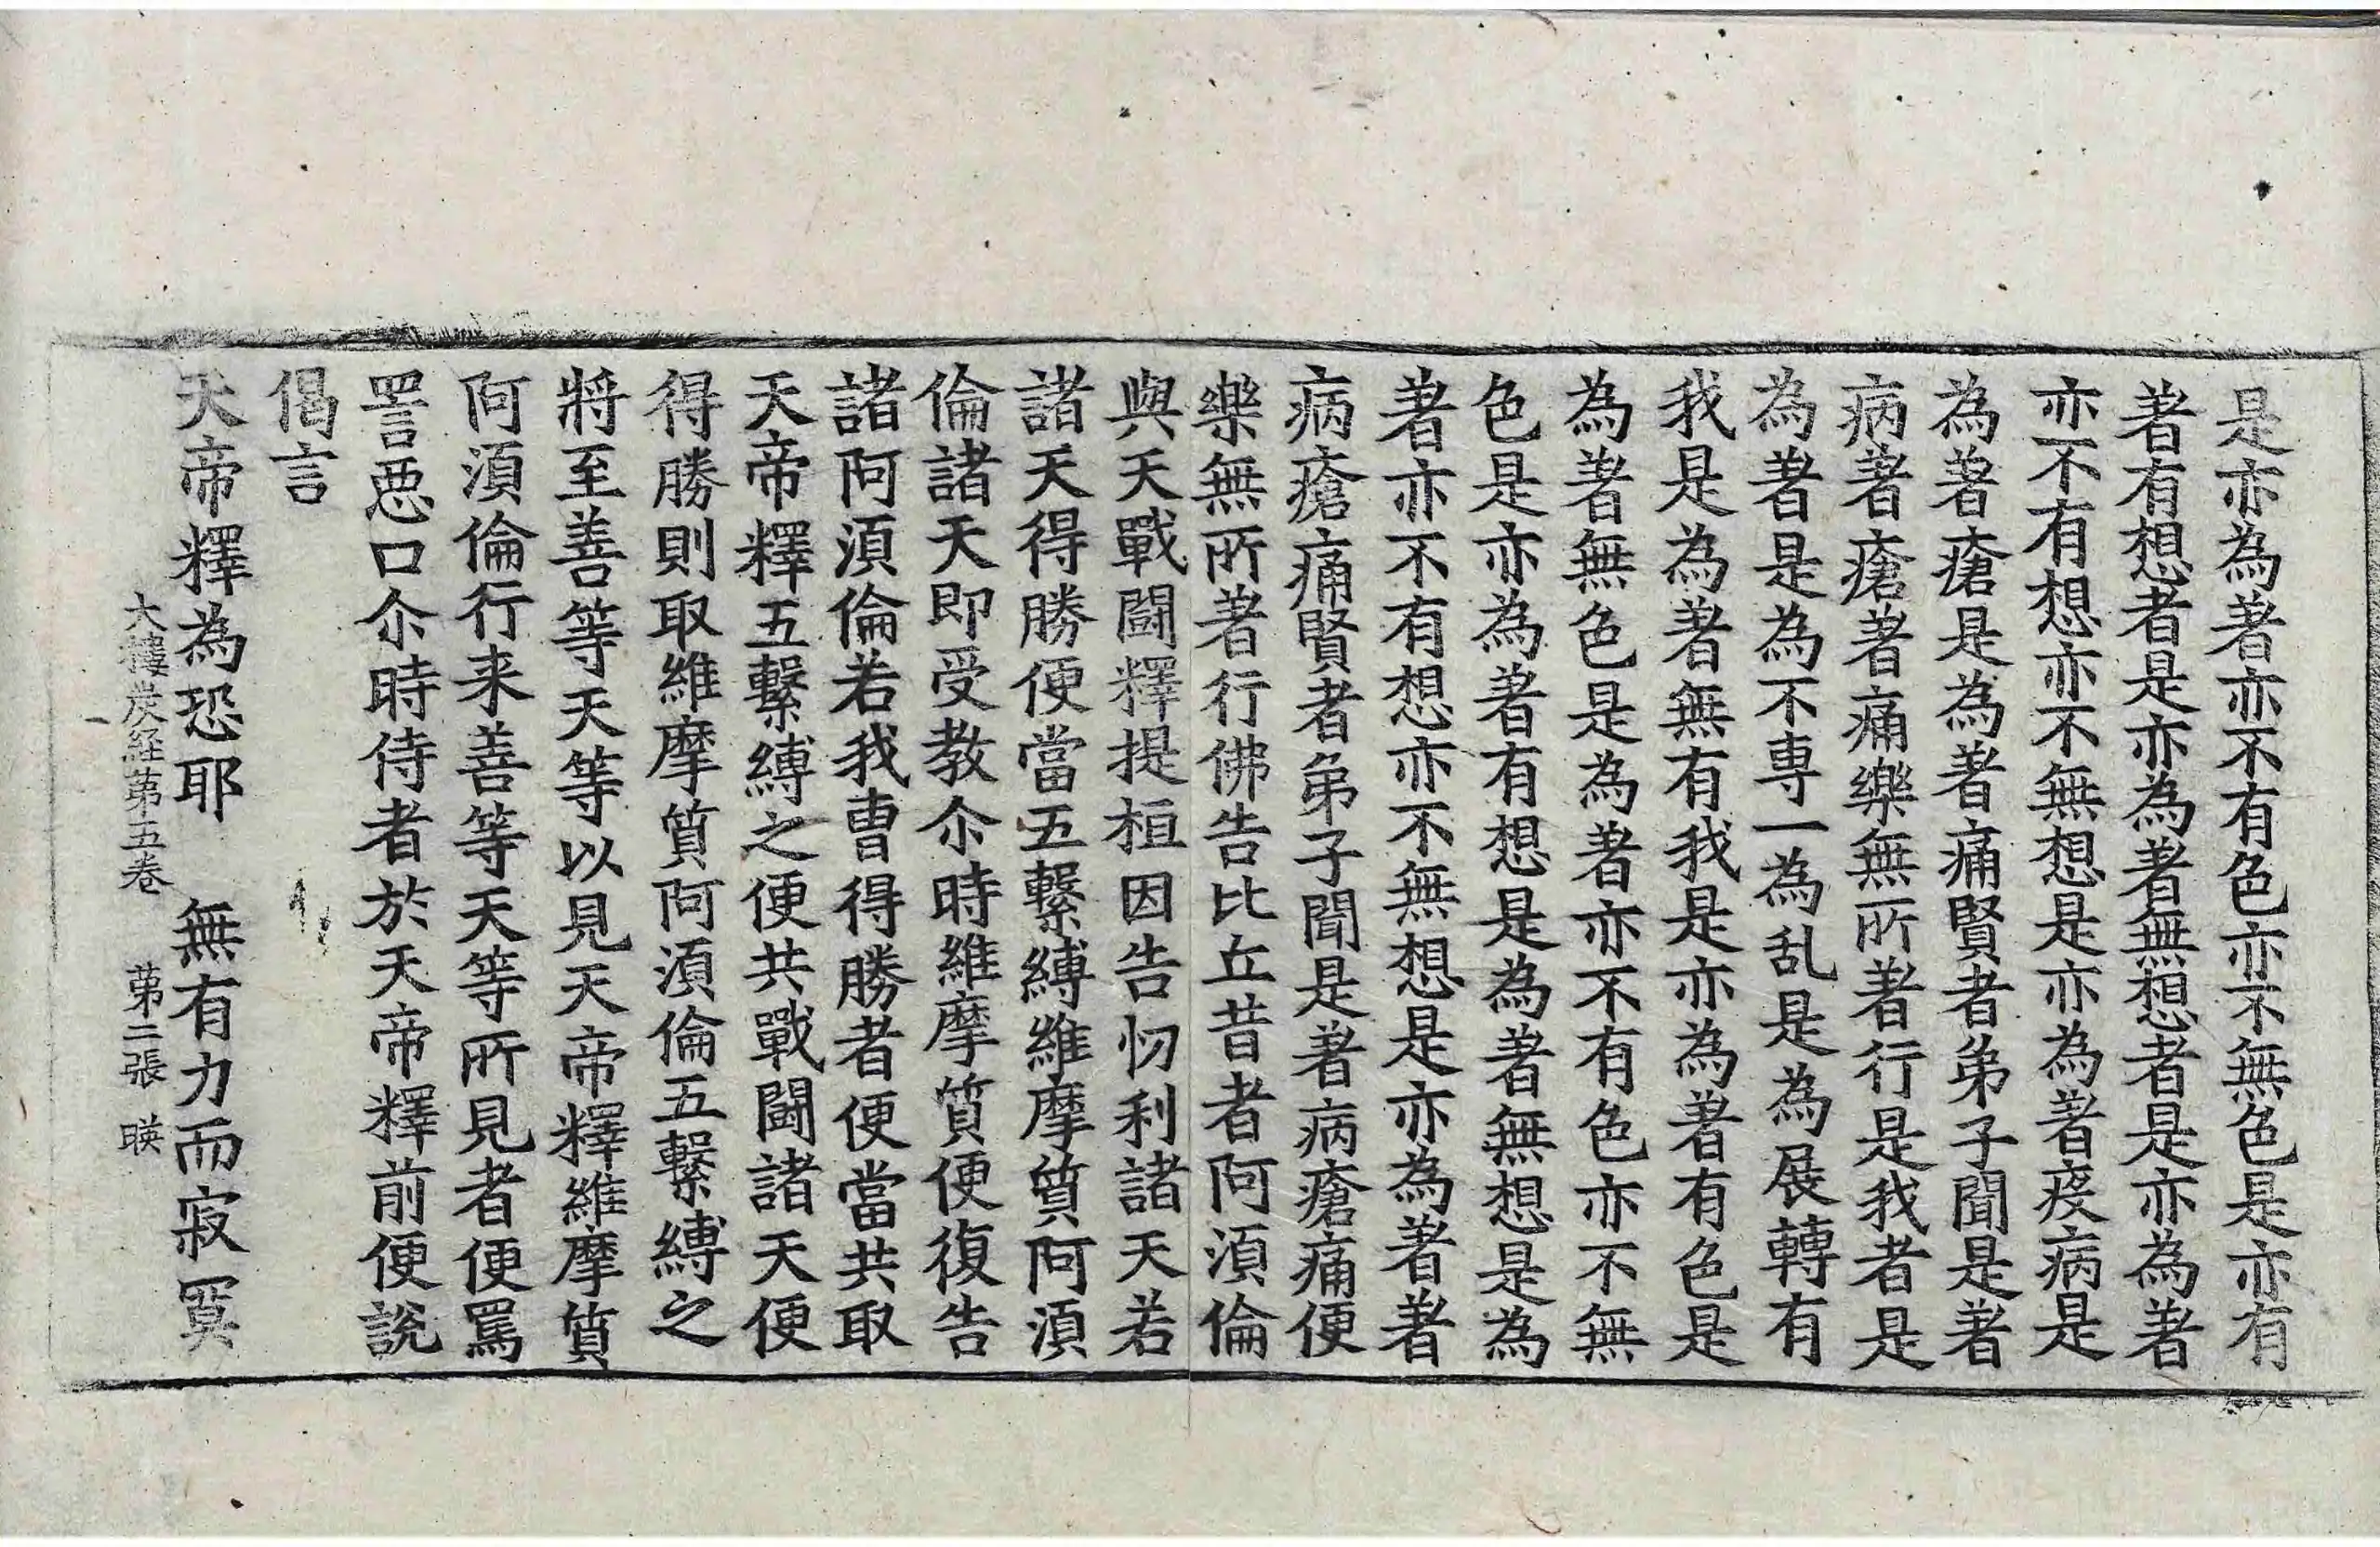 是亦為著亦不有色亦不無色是亦有
著有想者是亦為著無想者是亦為著
亦不有想亦不無想是亦為著疫病是
為著瘡是為著痛賢者弟子聞是著
病著瘡著痛樂無所著行是我者是
為著是為不專一為乱是為展轉有
我是為著無有我是亦為著有色是
為著無色是為著亦不有色亦不無
色是亦為著有想是為著無想是為
著亦不有想亦不無想是亦為著著
病瘡痛賢者弟子聞是著病瘡痛便
樂無所著行佛告比丘昔者阿湏倫
與天戰鬪釋提桓因告忉利諸天若
諸天得勝便當五繫縛維摩質阿湏
倫諸天即受教尒時維摩質便復告
諸阿湏倫若我曹得勝者便當共取
天帝釋五繫縛之便共戰鬪諸天便
得勝則取維摩質阿湏倫五繫縛之
將至善等天等以見天帝釋維摩質
阿湏倫行来善等天等所見者便罵
詈惡口尒時侍者於天帝釋前便說
偈言
天帝釋為恐耶　無有力而寂寞
大樓炭経苐五卷　苐二張　暎